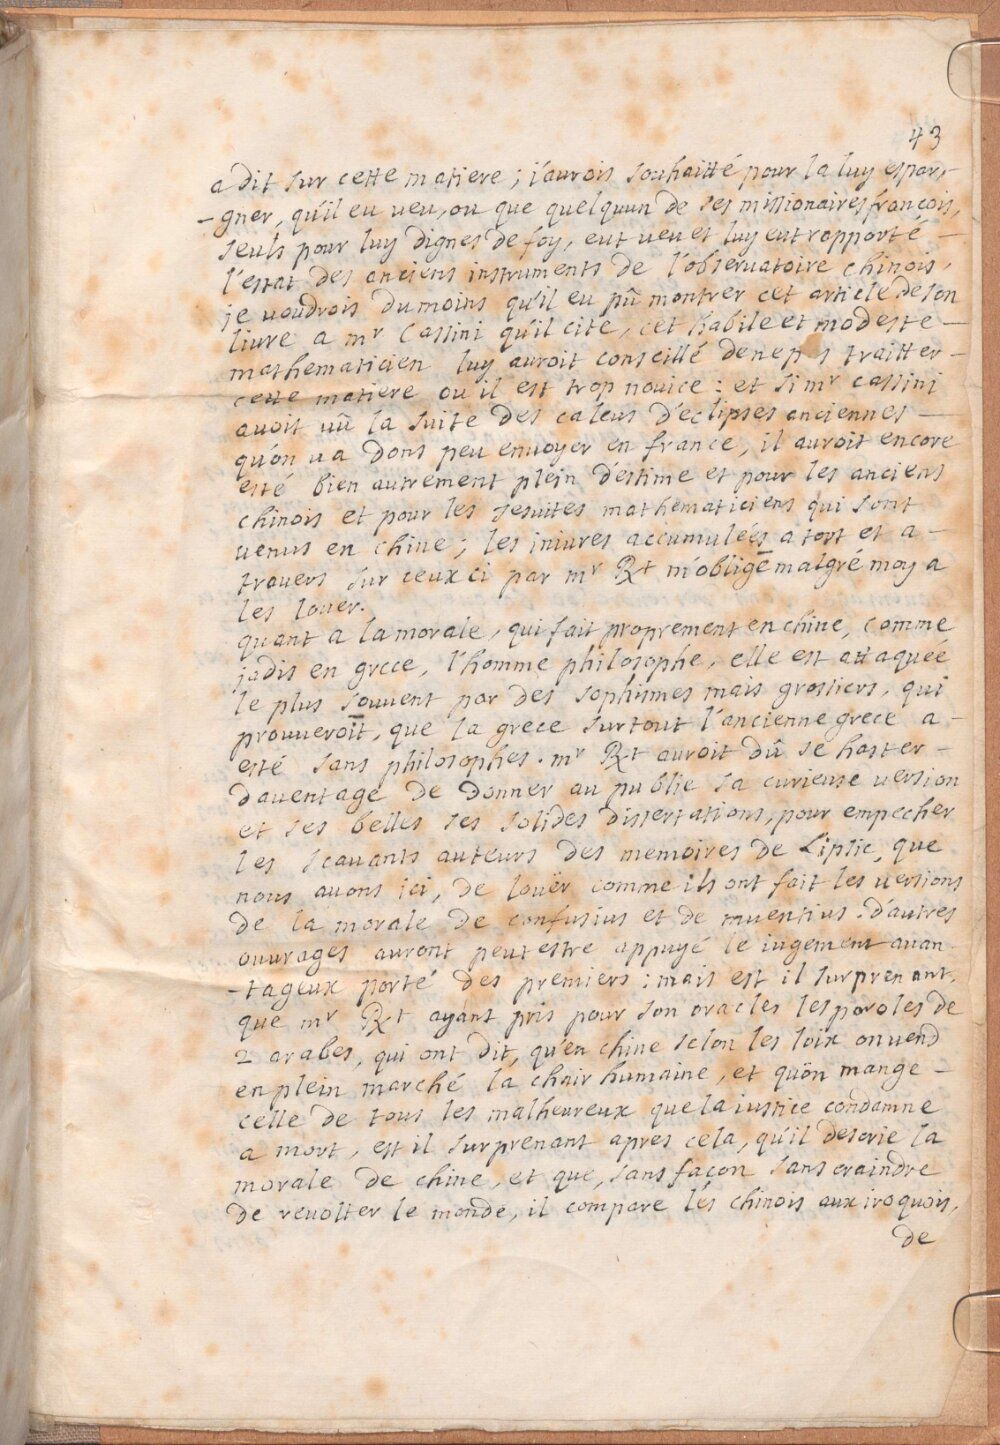 43
a dit sur cette matiere ; j'aurois souhaitté pour la luy espar,-
-gner, qu'il eu veu, ou que quelquun de ses missionaires francois,
seuls pour luy dignes de foy, eut veu et luy eut rapporté -
l'estat des anciens instruments de l'observatoire chinois,
je voudrois dumoins qu'il eu pû montrer cet article de son
livre a mr Cassini qu'il cite, cet habile et modeste -
mathematicien luy auroit conseillé de ne p s traitter -
cette matiere ou il est trop novice : et si mr cassini
avoit vû la suite des calcus d'eclipses anciennes -
qu'on va dans peu envoyer en france, il auroit encore
esté bien autrement plein d'estime et pour les anciens
chinois et pour les jesuites mathematiciens qui sont
venus en chine ; les iniures accumulées a tort et a -
travers sur ceux ci par mr Rt m'oblige malgré moy a
les louer.
quant a la morale, qui fait proprement en chine, comme
jadis en grece, l'homme philosophe, elle est attaquée
le plus souvent par des sophismes mais grossiers, qui
prouveroit, que la grece surtout l'ancienne grece a -
esté sans philosophes. mr Rt auroit dû se haster -
daventage de donner au publie sa curieuse version
et ses belles ses solides dissertations, pour empecher
les scavants auteurs des memoires de Lipsic, que
nous avons ici, de louër comme ils ont fait les versions
de la morale de confusius et de muentius. d'autres
ouvrages auront peutestre appuyé le iugement avan
-tageux porté des premiers : mais est il surprenant,
que mr Rt ayant pris pour son oracles les paroles de
2 arabes, qui ont dit, qu'en chine selon les loix on vend
en plein marché la chair humaine, et quön mange -
celle de tous les malheureux que la iustice condamne
a mort, est il surprenant apres cela, qu'il descrie la
morale de chine, et que, sans façon sans craindre
de revolter le monde, il compare les chinois aux iroquois,
de